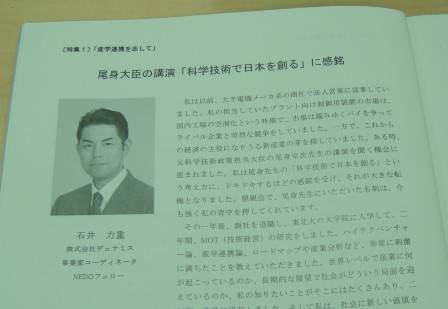 ［特集1］「産学連携を志して」
尾身大臣の講演「科学技術で日本を創る」に感銘
私は以前、大手電機メーカ系の商社で法人営業に従事してい
ました。私の担当していたプラント向け制御用装置の市場は、
国内工場の空洞化という時期で、市場は縮みゆくパイを争って
ライバル企業と苛烈な競争をしていました。一方で、これから
の経済の主役になりうる新産業の芽を探していました。ある時、
元科学技術政策担当大臣の尾身幸次先生の講演を聞く機会に
恵まれました。私は尾身先生の「科学技術で日本を創る」とい
う考え方に、ドキドキするほどの感銘を受け、それが大きな転
機となりました。懇親会で、尾身先生にいただいた名刺は、今
も強く私の背中を押してくれています。
その一年後、商社を退職し、東北大の大学院に入学して、二
年間、MOT（技術経営）の研究をしました。ハイテクベンチャ
ー論、産学連携論、ロードマップや産業分析など、非常に刺激
に満ちたことを教えていただきました。世界レベルで産業に何
が起こっているのか、長期的な展望で社会がどういう局面を迎
えているのか、私の知りたいことがそこにはたくさんあり、二
石井 力重
株式会社デュナミス
事業家コーディネータ
NEDOフェロー